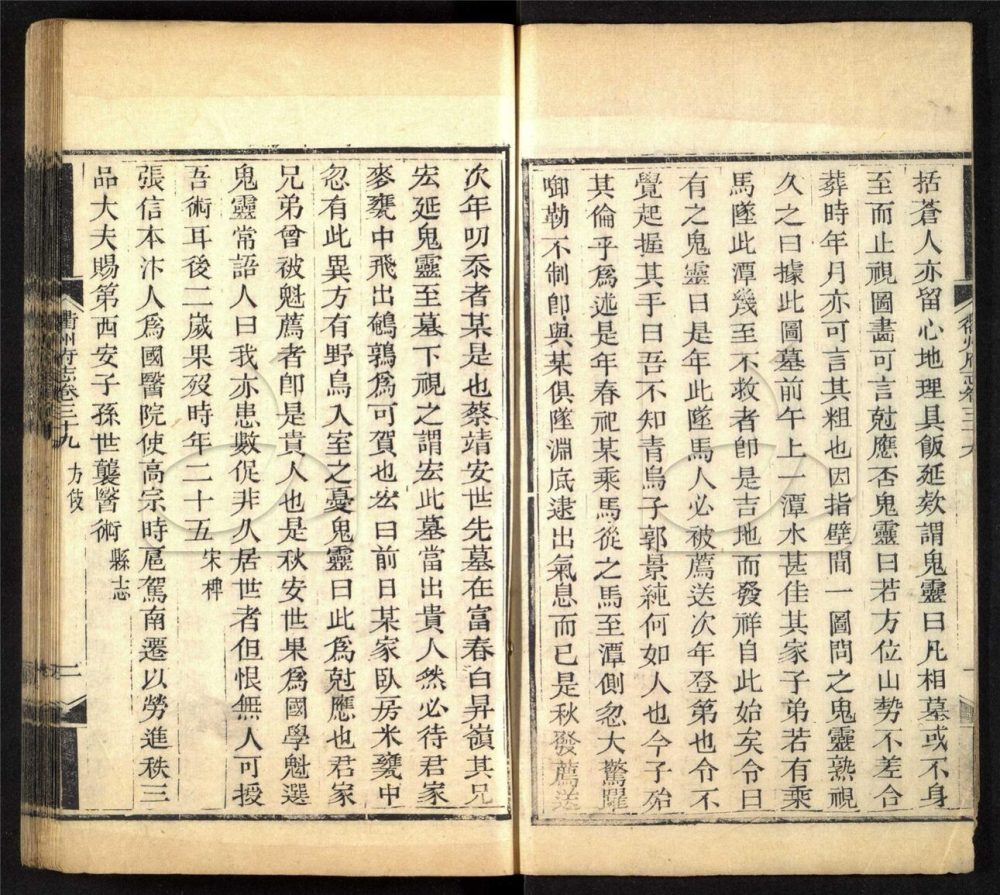 括蒼人亦留心地理具飯延欬謂鬼靈曰凡相墓或不身
至而止視圖畵可言尅應否鬼靈曰若方位山勢不差合
葬時年月亦可言其粗也因指壁間一圖問之鬼靈熟視
久之曰據此圖墓前午上一潭水甚佳其家子弟若有乘
馬墜此潭幾至不救者卽是吉地而發祥自此始矣令曰
有之鬼靈曰是年此墜馬人必被薦送次年登第也令不
覺起握其手曰吾不知靑烏子郭景純何如人也今子殆
其倫乎爲述是年春祀某乘馬從之馬至潭側忽大驚躍
啣勒不制卽與某俱墜淵底逮出氣息而已是秋發薦送
衢州府志卷三十九
次年叨忝者某是也蔡靖安世先墓在富春白昇嶺其兄
宏延鬼靈至墓下視之謂宏此墓當出貴人然必待君家
麥甕中飛出鵪鶉爲可賀也宏曰前日某家臥房米甕中
忽有此異方有野鳥入室之憂鬼靈曰此爲尅應也君家
兄弟曾被魁薦者卽是貴人也是秋安世果爲國學魁選
鬼靈常語人曰我亦患數促非久居世者但恨無人可授
吾術耳後二嵗果歿時年二十五 宋稗
張信本汴人爲國醫院使高宗時扈駕南遷以勞進秩三
品大夫賜第西安子孫世襲醫術 縣志
衢州府志卷三十九 方伎 二